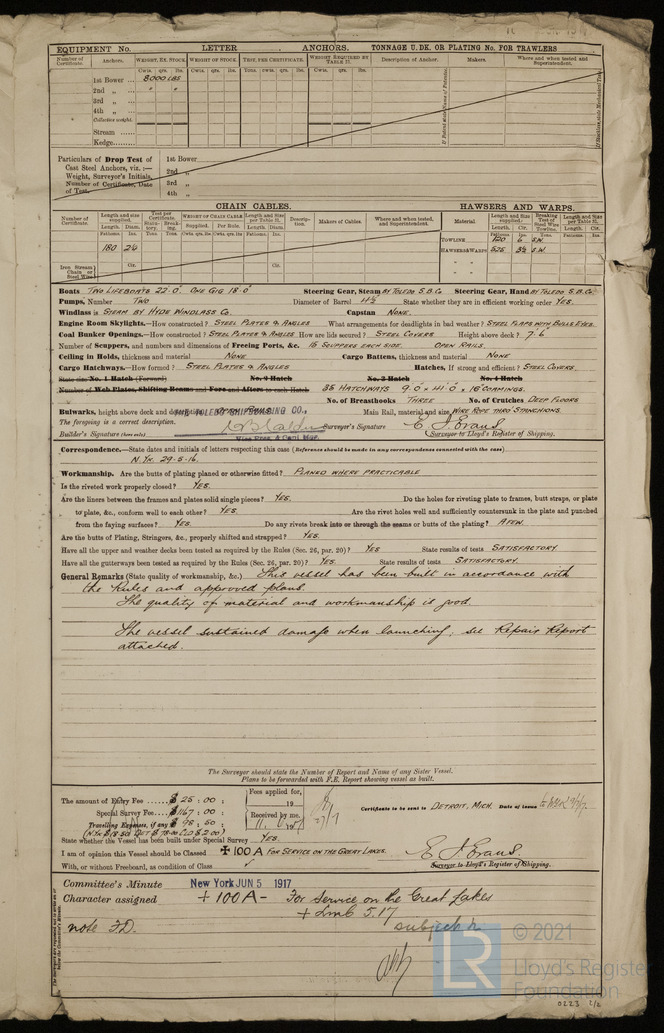 EQUIPMENT No. LETTER ANCHORS. TONNAGE U.DK. OR PLATING No. FOR TRAWLERS
Number of Certificate. Anchors. WEIGHT, EX. STOCK. WEIGHT OF STOCK. TEST, PER CERTIFICATE. WEIGHT REQUIRED BY TABLE 21. Description of Anchor. Makers. Where and when tested and Superintendent.
Cwts. qrs. lbs. Cwts. qrs. lbs. Tons. cwts. qrs. lbs. Cwts. qrs. lbs.
1st Bower 8000 LBS
2nd „ " "
3rd „
4th „
Collective weight.
Stream
Kedge
Particulars of Drop Test of Cast Steel Anchors, viz. :— Weight, Surveyor's Initials, Number of Certificate, Date of Test.
1st Bower
2nd „
3rd „
4th „
CHAIN CABLES. HAWSERS AND WARPS.
Number of Certificate. Length and size supplied. Test per Certificate. WEIGHT OF CHAIN CABLE Length and Size per Table 21. Description. Makers of Cables. Where and when tested, and Superintendent. Material Length and size supplied. Breaking Test of Steel Wire Towline. Length and Size per Table 21.
TOWLINE 120 6 S.W.
180 2 1/4 HAWSERS & WARPS 525 3½ S.W.
Iron Stream Chain or Steel Wire Cir. Cir.
Boats TWO LIFEBOATS 22'.0". ONE GIG 18'.0" Steering Gear, Steam BY TOLEDO S.B.Co Steering Gear, Hand BY TOLEDO S.B.Co.
Pumps, Number TWO Diameter of Barrel 4½" State whether they are in efficient working order YES.
Windlass is STEAM BY HYDE WINDLASS CO. Capstan NONE.
Engine Room Skylights.—How constructed ? STEEL PLATES & ANGLES What arrangements for deadlights in bad weather ? STEEL FLAPS WITH BULLS EYES.
Coal Bunker Openings.—How constructed ? STEEL PLATES & ANGLES How are lids secured ? STEEL COVERS Height above deck ? 7'.6"
Number of Scuppers, and numbers and dimensions of Freeing Ports, &c. 15 SCUPPERS EACH SIDE. OPEN RAILS.
Ceiling in Holds, thickness and material NONE Cargo Battens, thickness and material NONE
Cargo Hatchways.—How formed ? STEEL PLATES & ANGLES Hatches, If strong and efficient ? STEEL COVERS.
State size No. 1 Hatch (Forward) No. 2 Hatch No. 3 Hatch No. 4 Hatch
Number of Web Plates, Shifting Beams and Fore and Afters to each Hatch 35 HATCHWAYS 9'.0" × 41'.0" × 16" COAMINGS.
No. of Breasthooks THREE No. of Crutches DEEP FLOORS
Bulwarks, height above deck and OPEN RAILS Main Rail, material and size WIRE ROPE THRO' STANCHIONS.
THE TOLEDO SHIPBUILDING CO.,
The foregoing is a correct description.
Builder's Signature Surveyor's Signature E. J. Evans
Vice Pres. & Genl. Mgr. Surveyor to Lloyd's Register of Shipping.
Correspondence.—State dates and initials of letters respecting this case (Reference should be made in any correspondence connected with the case)
N.Yk. 29-5-16.
Workmanship. Are the butts of plating planed or otherwise fitted? PLANED WHERE PRACTICABLE
Is the riveted work properly closed? YES.
Are the liners between the frames and plates solid single pieces? YES. Do the holes for riveting plate to frames, butt straps, or plate
to plate, &c., conform well to each other? YES. Are the rivet holes well and sufficiently countersunk in the plate and punched
from the faying surfaces? YES. Do any rivets break into or through the seams or butts of the plating? A FEW.
Are the butts of Plating, Stringers, &c., properly shifted and strapped? YES.
Have all the upper and weather decks been tested as required by the Rules (Sec. 26, par. 20)? YES State results of tests SATISFACTORY.
Have all the gutterways been tested as required by the Rules (Sec. 26, par. 20)? YES. State results of tests SATISFACTORY.
General Remarks (State quality of workmanship, &c.) This vessel has been built in accordance with
the Rules and approved plans.
The quality of material and workmanship is good.
The vessel sustained damage when launching, see Repair Report
attached.
The Surveyor should state the Number of Report and Name of any Sister Vessel.
Plans to be forwarded with F.E. Report showing vessel as built.
The amount of Entry Fee $ 25 : 00 : Fees applied for,
Special Survey Fee $1167 : 00 : 19
Travelling Expenses, if any $ 98 : 50 : Received by me,
Certificate to be sent to DETROIT, MICH. Date of issue
State whether this Vessel has been built under Special Survey YES.
I am of opinion this Vessel should be Classed ✠ 100 A FOR SERVICE ON THE GREAT LAKES.
E. J. Evans
With, or without Freeboard, as condition of Class Surveyor to Lloyd's Register of Shipping.
Committee's Minute New York JUN 5 1917
Character assigned + 100 A – For Service on the Great Lakes
+ LMC 5.17
note F.D. subject
© 2021
LR
Lloyd's Register
Foundation
0223 2/2